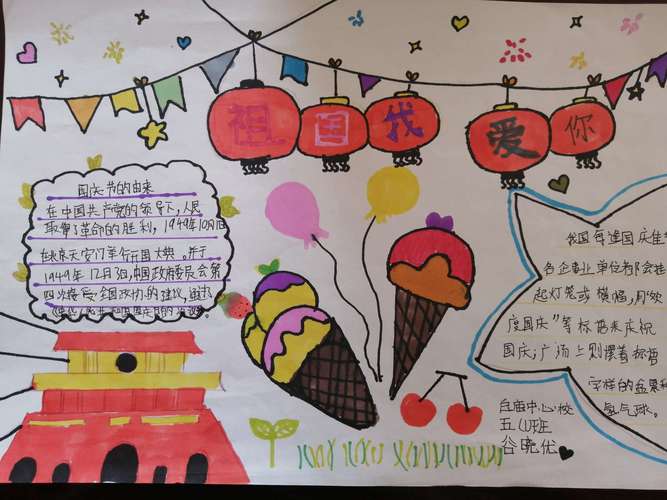 祖国我爱你
国庆节的由来
在中国共产党的领导下,人民
取得了革命的胜利,1949年10月1日
在北京天安门举行开国大典。并于
1949年12月3日,中国政府委员会第
四次接受全国政协的建议,通过
我国每逢国庆佳
各企事业单位都会挂
起灯笼或横幅,用“欢
度国庆”等标语来庆祝
国庆;广场上则摆着标着
字样的盆果和
氢气球。
白庙中心校
五(4)班
谷晓优